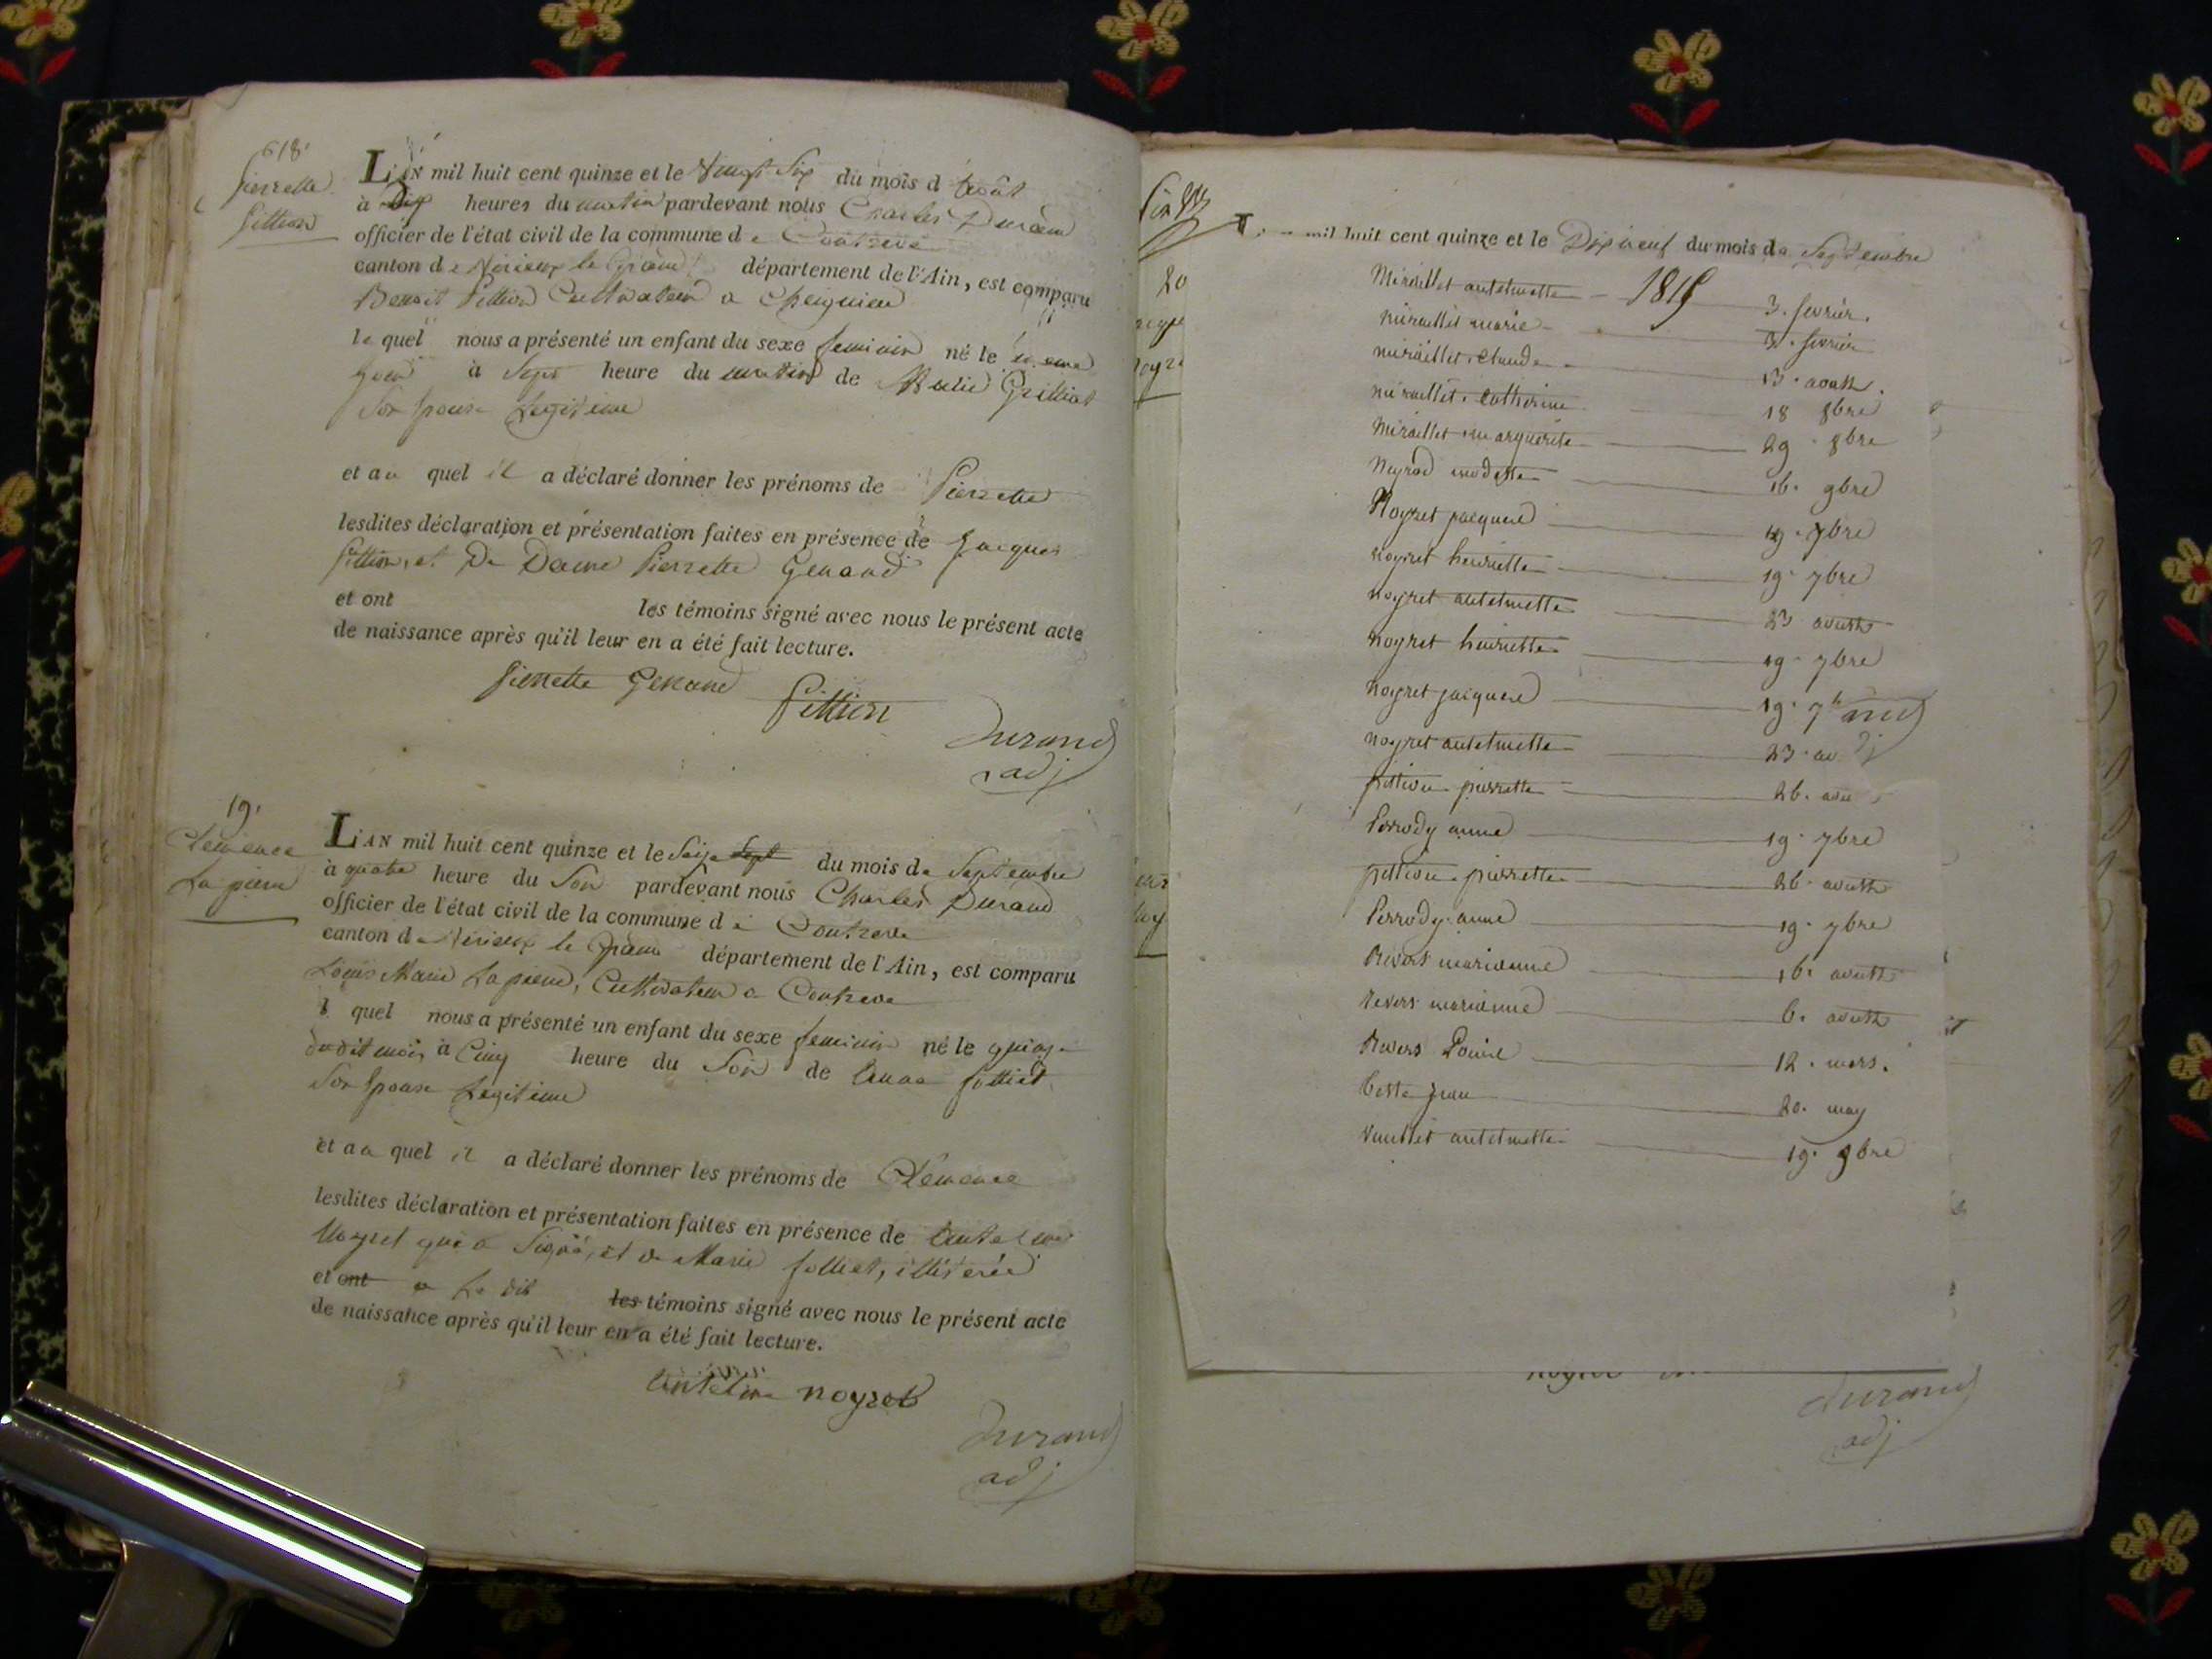 618
Pierrette
Pittion
L'AN mil huit cent quinze et le Vingt Six du mois d'Août
à Dix heures du matin pardevant nous Charles Durand
officier de l'état civil de la commune de Contrevoz
canton de Virieux le Grand département de l'Ain, est comparu
Benoit Pittion Cultivateur a Cheignieu
le quel nous a présenté un enfant du sexe feminin né le
jour à Sept heure du matin de Grilliet
Son Epouse Legitime
et au quel il a déclaré donner les prénoms de Pierrette
lesdites déclaration et présentation faites en présence de Jacques
Pittion, et De Dame Pierrette Genand
et ont les témoins signé avec nous le présent acte
de naissance après qu'il leur en a été fait lecture.
Pierrette Genand
Pittion
Durand
adj
19.
Clemence
La pierre
L'AN mil huit cent quinze et le Seize Sept du mois de Septembre
à quatre heure du Soir pardevant nous Charles Durand
officier de l'état civil de la commune de Contrevoz
canton de Virieux le Grand département de l'Ain, est comparu
Louis Marie La pierre, Cultivateur a Contrevoz
le quel nous a présenté un enfant du sexe feminin né le quinze
dudit mois à Cinq heure du Soir de folliet
Son Epouse Legitime
et au quel il a déclaré donner les prénoms de Clemence
lesdites déclaration et présentation faites en présence de Antelme
Noyret qui a Signé, et de Marie folliet, illiterée
et ont a Le dit les témoins signé avec nous le présent acte
de naissance après qu'il leur en a été fait lecture.
antelme noyret
Durand
adj
20
mil huit cent quinze et le Dix neuf du mois de Septembre
1815
Miraillet antelmette 3. fevrier.
miraillet marie 3. fevrier
miraillet claude 13. aoust.
miraillet catherine 18 8bre
Miraillet marguerite 29. 8bre
Neyrod modeste 16. 9bre
Noyret jacques 19. 7bre
noyret henriette 19. 7bre
noyret antelmette 23 aoust
noyret henriette 19. 7bre
noyret jacques 19. 7b
noyret antelmette 23. ao
pittion pierrette 26. aou
Perrody anne 19. 7bre
pittion pierrette 26. aoust
Perrody anne 19. 7bre
Revers marianne 16. aoust
revers marianne 6. aoust
Revers Louise 12. mars.
teste jean 20. may
vuillet antelmette 19. 9bre
Durand
adj